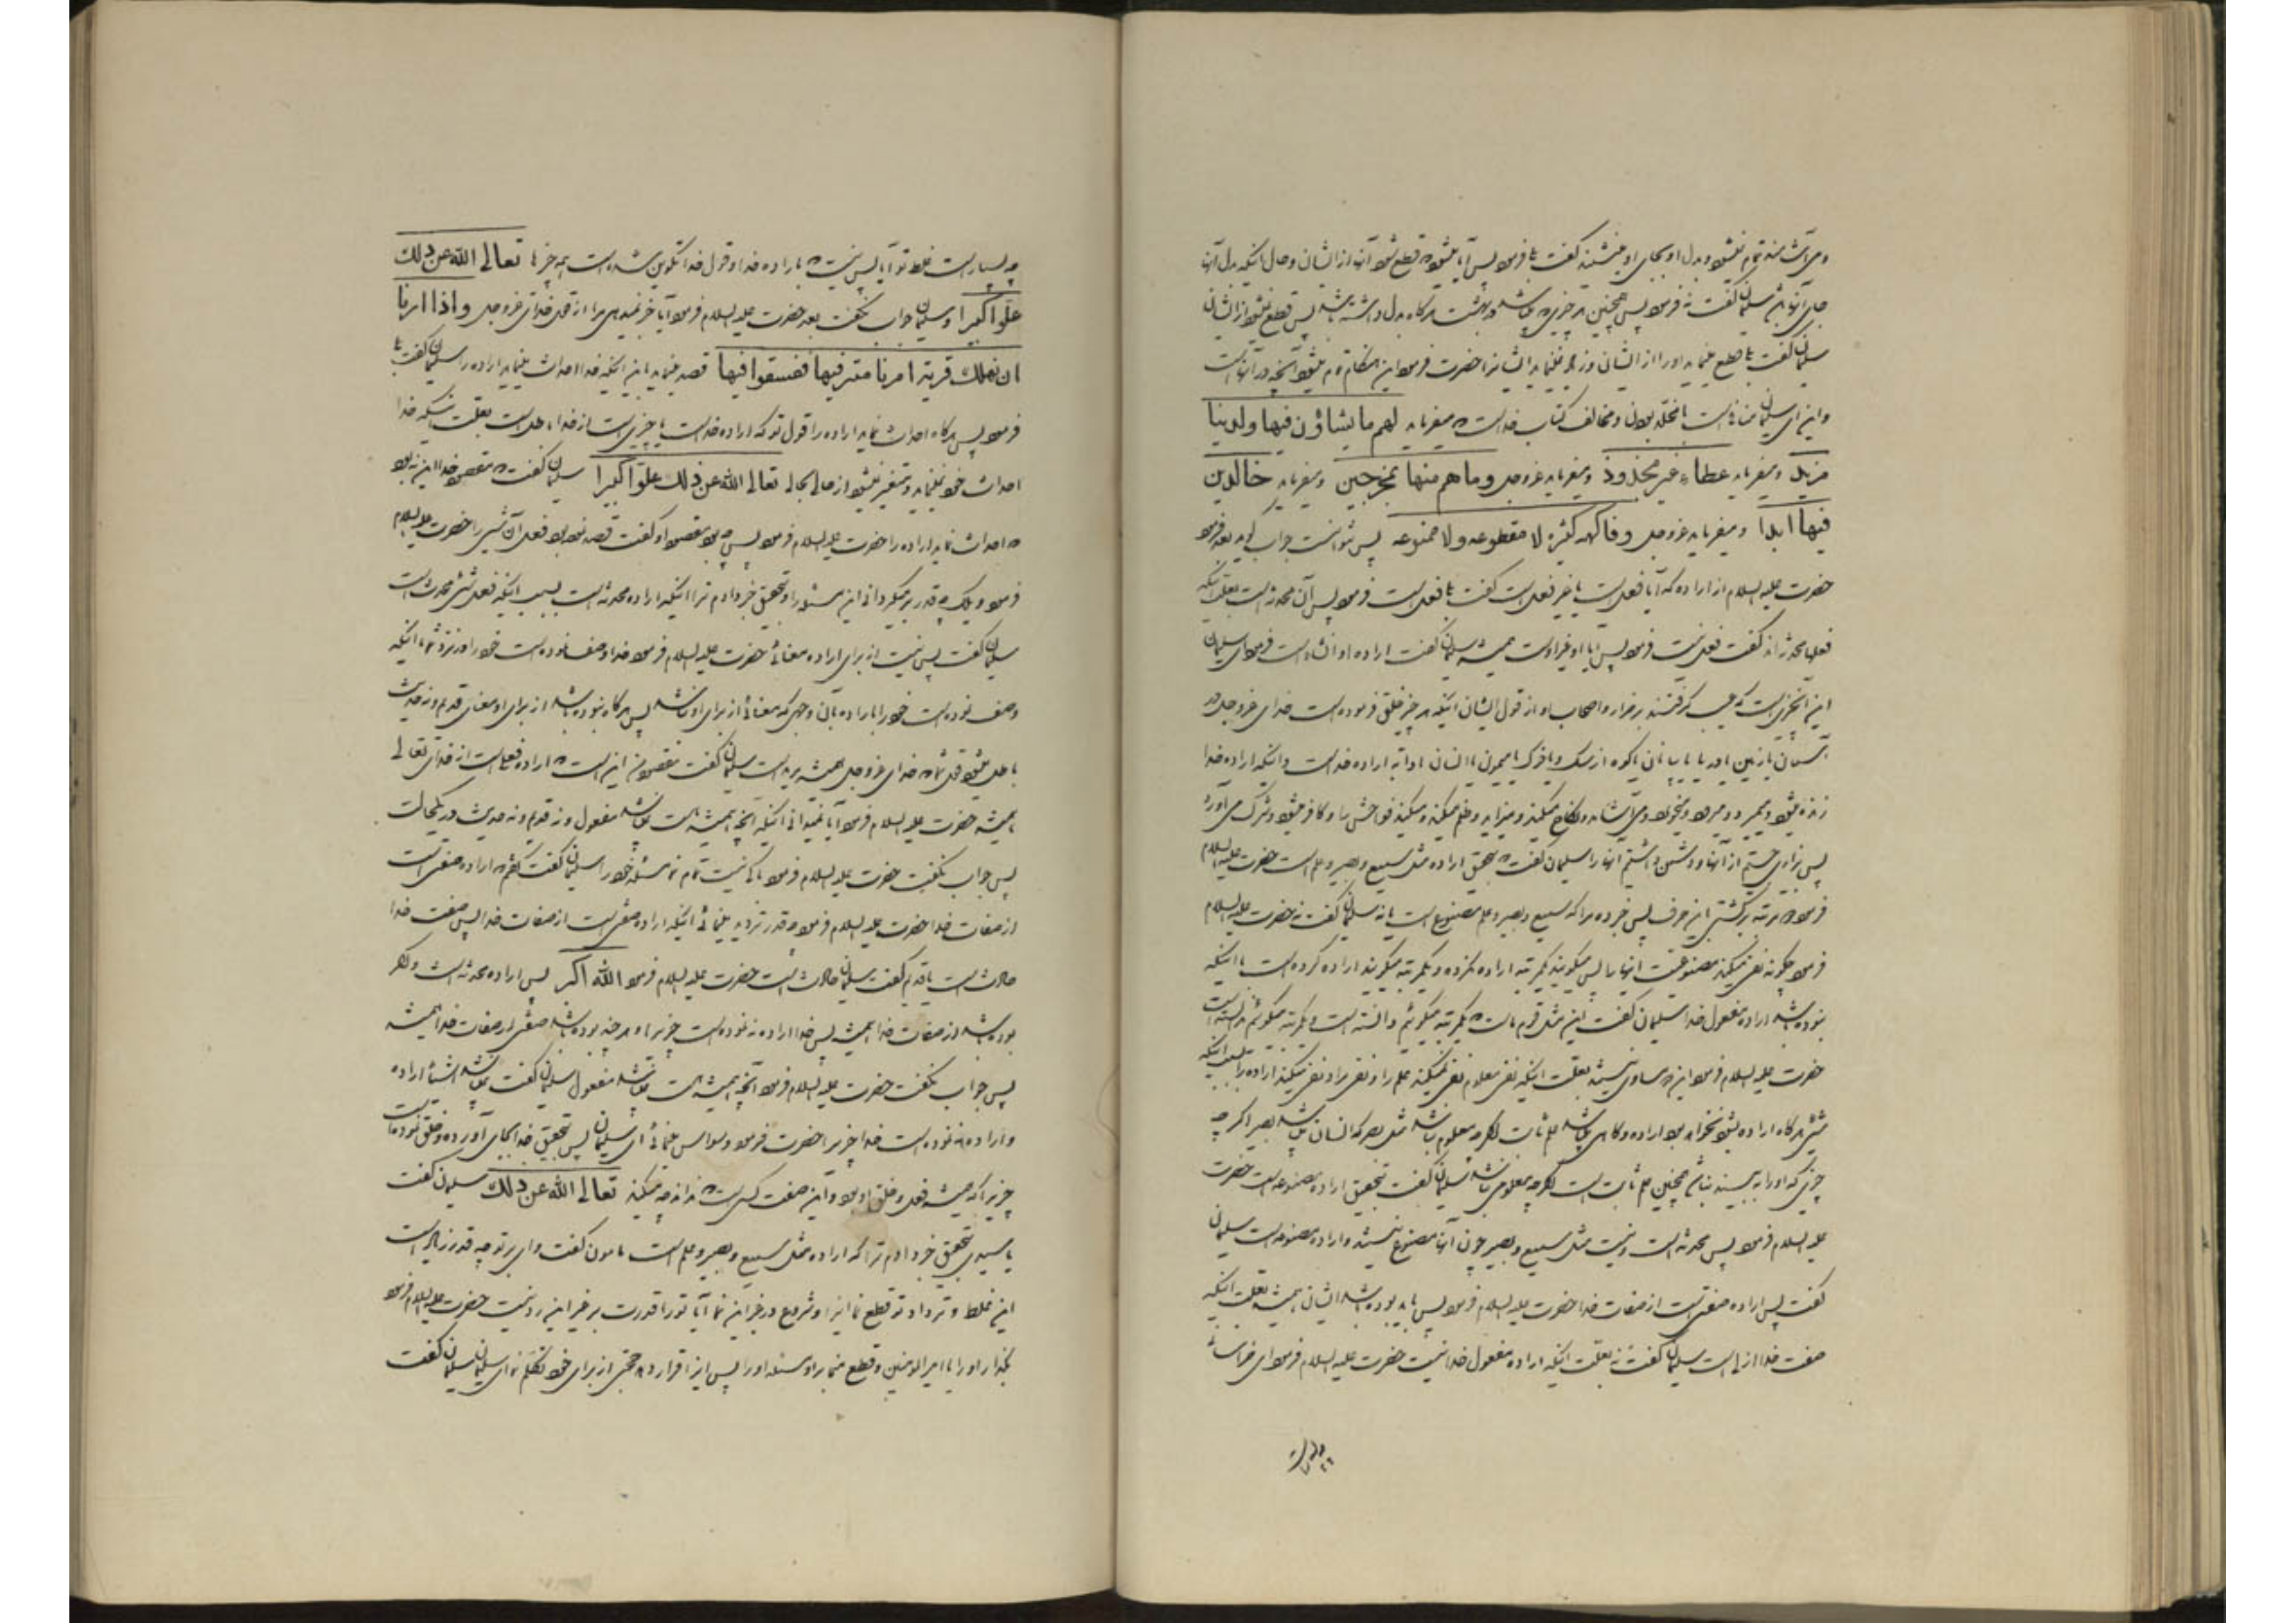 می‌آشامند تمام نمیشود و بدل او بجای او مینشیند گفت بلی فرمود پس آیا میشود که قطع شود آنها از ایشان و حال اینکه بدل آنها
جای آنها باشد سلیمان گفت نه فرمود پس همچنین هر چیزی که باشد در بهشت هرگاه بدل داشته باشد پس قطع نمیشود از ایشان
سلیمان گفت بلی قطع مینماید او را از ایشان و زیاد نمینماید ایشانرا حضرت فرمود این هنگام تمام میشود آنچه در آنهاست
و این ای سلیمان منافی است با مخلد بودن و مخالف کتاب خداست که میفرماید لهم ما یشاؤن فیها ولدینا
مزید و میفرماید عطاء غیر مجذوذ و میفرماید عزوجل وما هم منها بمخرجین و میفرماید خالدین
فیها ابدا و میفرماید عزوجل وفاکهه کثیره لا مقطوعه ولا ممنوعه پس نتوانست جواب گوید بعد فرمود
حضرت علیه السلام از اراده که آیا فعل است یا غیر فعل است گفت بلی فعل است فرمود پس آن محدثه است بعلت اینکه
فعلها محدثه‌اند گفت فعل نیست فرمود پس آیا او غیر اوست همیشه سلیمان گفت اراده او انشاء است فرمود ای سلیمان
این آنچیزی است که عیب گرفتند بر ضرار و اصحاب او از قول ایشان اینکه هر چیز خلق فرموده است خدای عزوجل در
آسمان یا زمین یا دریا یا بیابان یا کوه از سگ و یا خوک یا میمون یا انسان یا دابه اراده خداست و اینکه اراده خدا
زنده میشود و میمیرد و میرود و میخورد و می‌آشامد و نکاح میکند و میزاید و ظلم میکند و میکند فواحش را و کافر میشود و شرک می‌آورد
پس بیزاری جستیم از آنها و دشمن داشتیم آنها را سلیمان گفت که بتحقیق اراده مثل سمیع و بصیر و علم است حضرت علیه السلام
فرمود که برگشتی این حرف پس خبر ده مرا که سمیع و بصیر و علم مصنوع است یا نه سلیمان گفت نه حضرت علیه السلام
فرمود چگونه نفی میکنید مصنوعیت آنها را پس میگویید یکمرتبه اراده نکرده و یکمرتبه میگویید اراده کرده است با اینکه
نبوده باشد اراده مفعول خدا سلیمان گفت این مثل قول ماست که یکمرتبه میگوئیم دانسته است و یکمرتبه میگوئیم ندانسته است
حضرت علیه السلام فرمود این مساوی نیستند بعلت اینکه نفی معلوم نفی نمیکند علم را و نفی مراد نفی میکند اراده را بسبب اینکه
شئ هرگاه اراده نشود نخواهد بود اراده و گاهی میباشد علم ثابت اگرچه معلوم نباشد مثل بصر که انسان میباشد بصیر اگر چه
چیزی که او را ببیند نباشد همچنین علم ثابت است اگرچه معلومی نباشد سلیمان گفت بتحقیق اراده مصنوعه است حضرت
علیه السلام فرمود پس محدثه است و نیست مثل سمیع و بصیر چون آنها مصنوع نیستند و اراده مصنوعه است سلیمان
گفت پس اراده صفتی است از صفات خدا حضرت علیه السلام فرمود پس باید بوده باشد انسان همیشه بعلت اینکه
صفت خدا ازلی است سلیمان گفت نه بعلت اینکه اراده مفعول خدا نیست حضرت علیه السلام فرمود ای خراسانی
چه بسیار است غلط تو آیا پس نیست که باراده خدا و قول خدا تکوین شده است همه چیزها تعالی الله عن ذلک
علوا کبیرا و سلیمان جواب نگفت بعد حضرت علیه السلام فرمود آیا خبر نمیدهی مرا از قول خدای عزوجل واذا اردنا
ان نهلک قریة امرنا مترفیها ففسقوا فیها قصد مینماید این اینکه خدا احداث مینماید اراده را سلیمان گفت بلی
فرمود پس هرگاه احداث نماید اراده را قول تو که اراده خداست یا چیزی است از خدا باطل است بعلت اینکه خدا
احداث خود نمینماید و متغیر نمیشود از حالی بحالی تعالی الله عن ذلک علوا کبیرا سلیمان گفت که مقصود خدا این نبود
که احداث نماید اراده را حضرت علیه السلام فرمود پس چه بود مقصود او گفت قصد نموده بود فعل آن شئ را حضرت علیه السلام
فرمود ویلک چه قدر بر میگردانی این مسئله را و بتحقیق خبر دادم ترا اینکه اراده محدثه است بسبب اینکه فعل شئ محدث است
سلیمان گفت پس نیست از برای اراده معنائی حضرت علیه السلام فرمود خدا وصف نموده است خود را در نزد شما با اینکه
وصف نموده است خود را باراده بآن وجهی که معنائی از برای او نباشد پس هرگاه نبوده باشد از برای او معنای قدیم و نه حدیث
باطل میشود قول شما که خدای عزوجل همیشه مرید است سلیمان گفت مقصودم این است که اراده فعلی است از خدای تعالی
همیشه حضرت علیه السلام فرمود آیا نمیدانی اینکه آنچه همیشه است نمیباشد مفعول و نه قدیم و نه حدیث در یکحالت
پس جواب نگفت حضرت علیه السلام فرمود باکی نیست تمام نما مسئله خود را سلیمان گفت گفتم که اراده صفتی است
از صفات خدا حضرت علیه السلام فرمود چه قدر تردید مینمائی اینکه اراده صفتی است از صفات خدا پس صفت خدا
حادث است یا قدیم گفت سلیمان حادث است حضرت علیه السلام فرمود الله اکبر پس اراده محدثه است و اگر
بوده باشد از صفات خدا همیشه پس خدا اراده ننموده است چیزیرا و هر چه بوده باشد صفتی از صفات خدا همیشه
پس جواب نگفت حضرت علیه السلام فرمود آنچه همیشه است نمیباشد مفعول سلیمان گفت نمیباشد اشیاء اراده
و اراده ننموده است خدا چیزیرا حضرت فرمود وسواس مینمائی ای سلیمان پس بتحقیق خدا بجای آورده و خلق نموده است
چیزیرا که همیشه فعل و خلق او بود و این صفت کسی است که نداند چه میکند تعالی الله عن ذلک سلیمان گفت
یا سیدی بتحقیق خبر دادم ترا که اراده مثل سمیع و بصیر و علم است مامون گفت وای بر تو چه قدر زیاد است
این غلط و ترداد تو قطع نما اینرا و شروع در غیر این نما آیا تو را قدرت بر غیر این رد نیست حضرت علیه السلام فرمود
بگذار او را یا امیر المومنین و قطع منما بر او مسئله او را پس این را قرار دهد حجتی از برای خود تکلم نما ای سلیمان سلیمان گفت